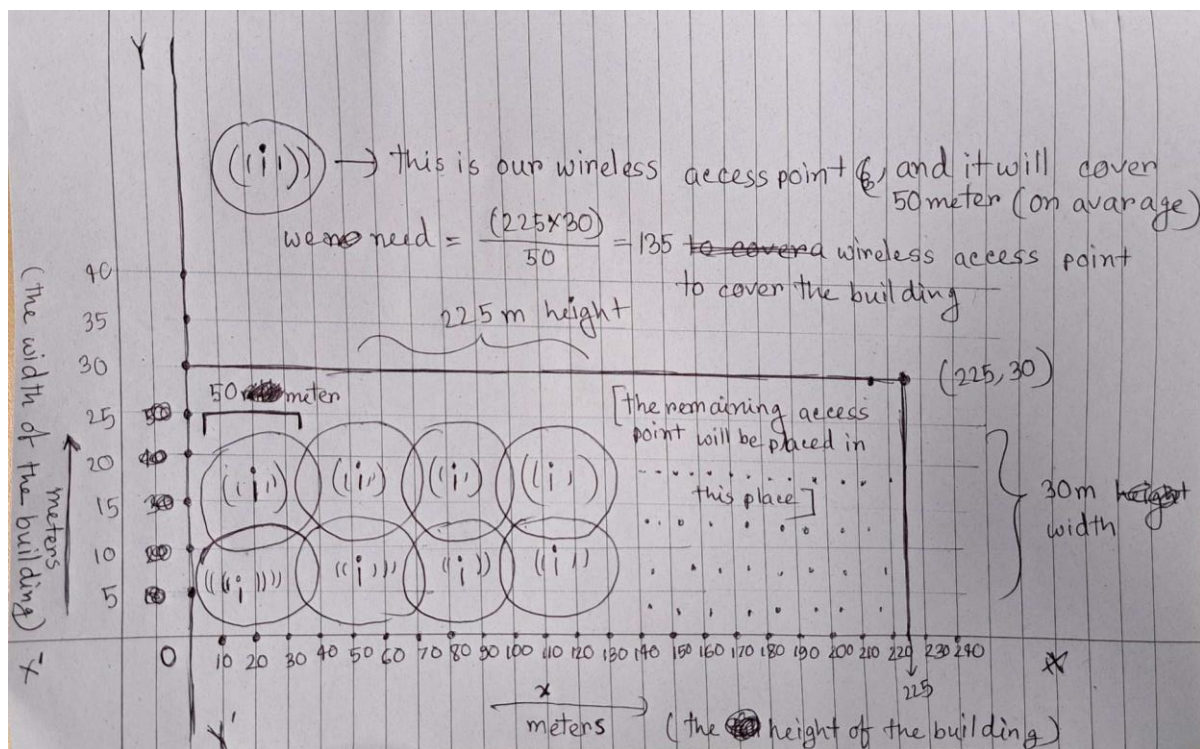 Y
((i)) → this is our wireless access point &, and it will cover
50 meter (on avarage)
we need = (225×30) / 50 = 135 a wireless access point
to cover the building
225 m height
(225, 30)
50 meter
[the remaining access
point will be placed in
this place]
((i)) ((i)) ((i)) ((i))
(((i))) ((i))) ((i)) ((i))
30m
width
40
35
30
25
20
15
10
5
(the width of the building)
meters
0 10 20 30 40 50 60 70 80 90 100 110 120 130 140 150 160 170 180 190 200 210 220 230 240
225
x
meters
(the height of the building)
X
Y'